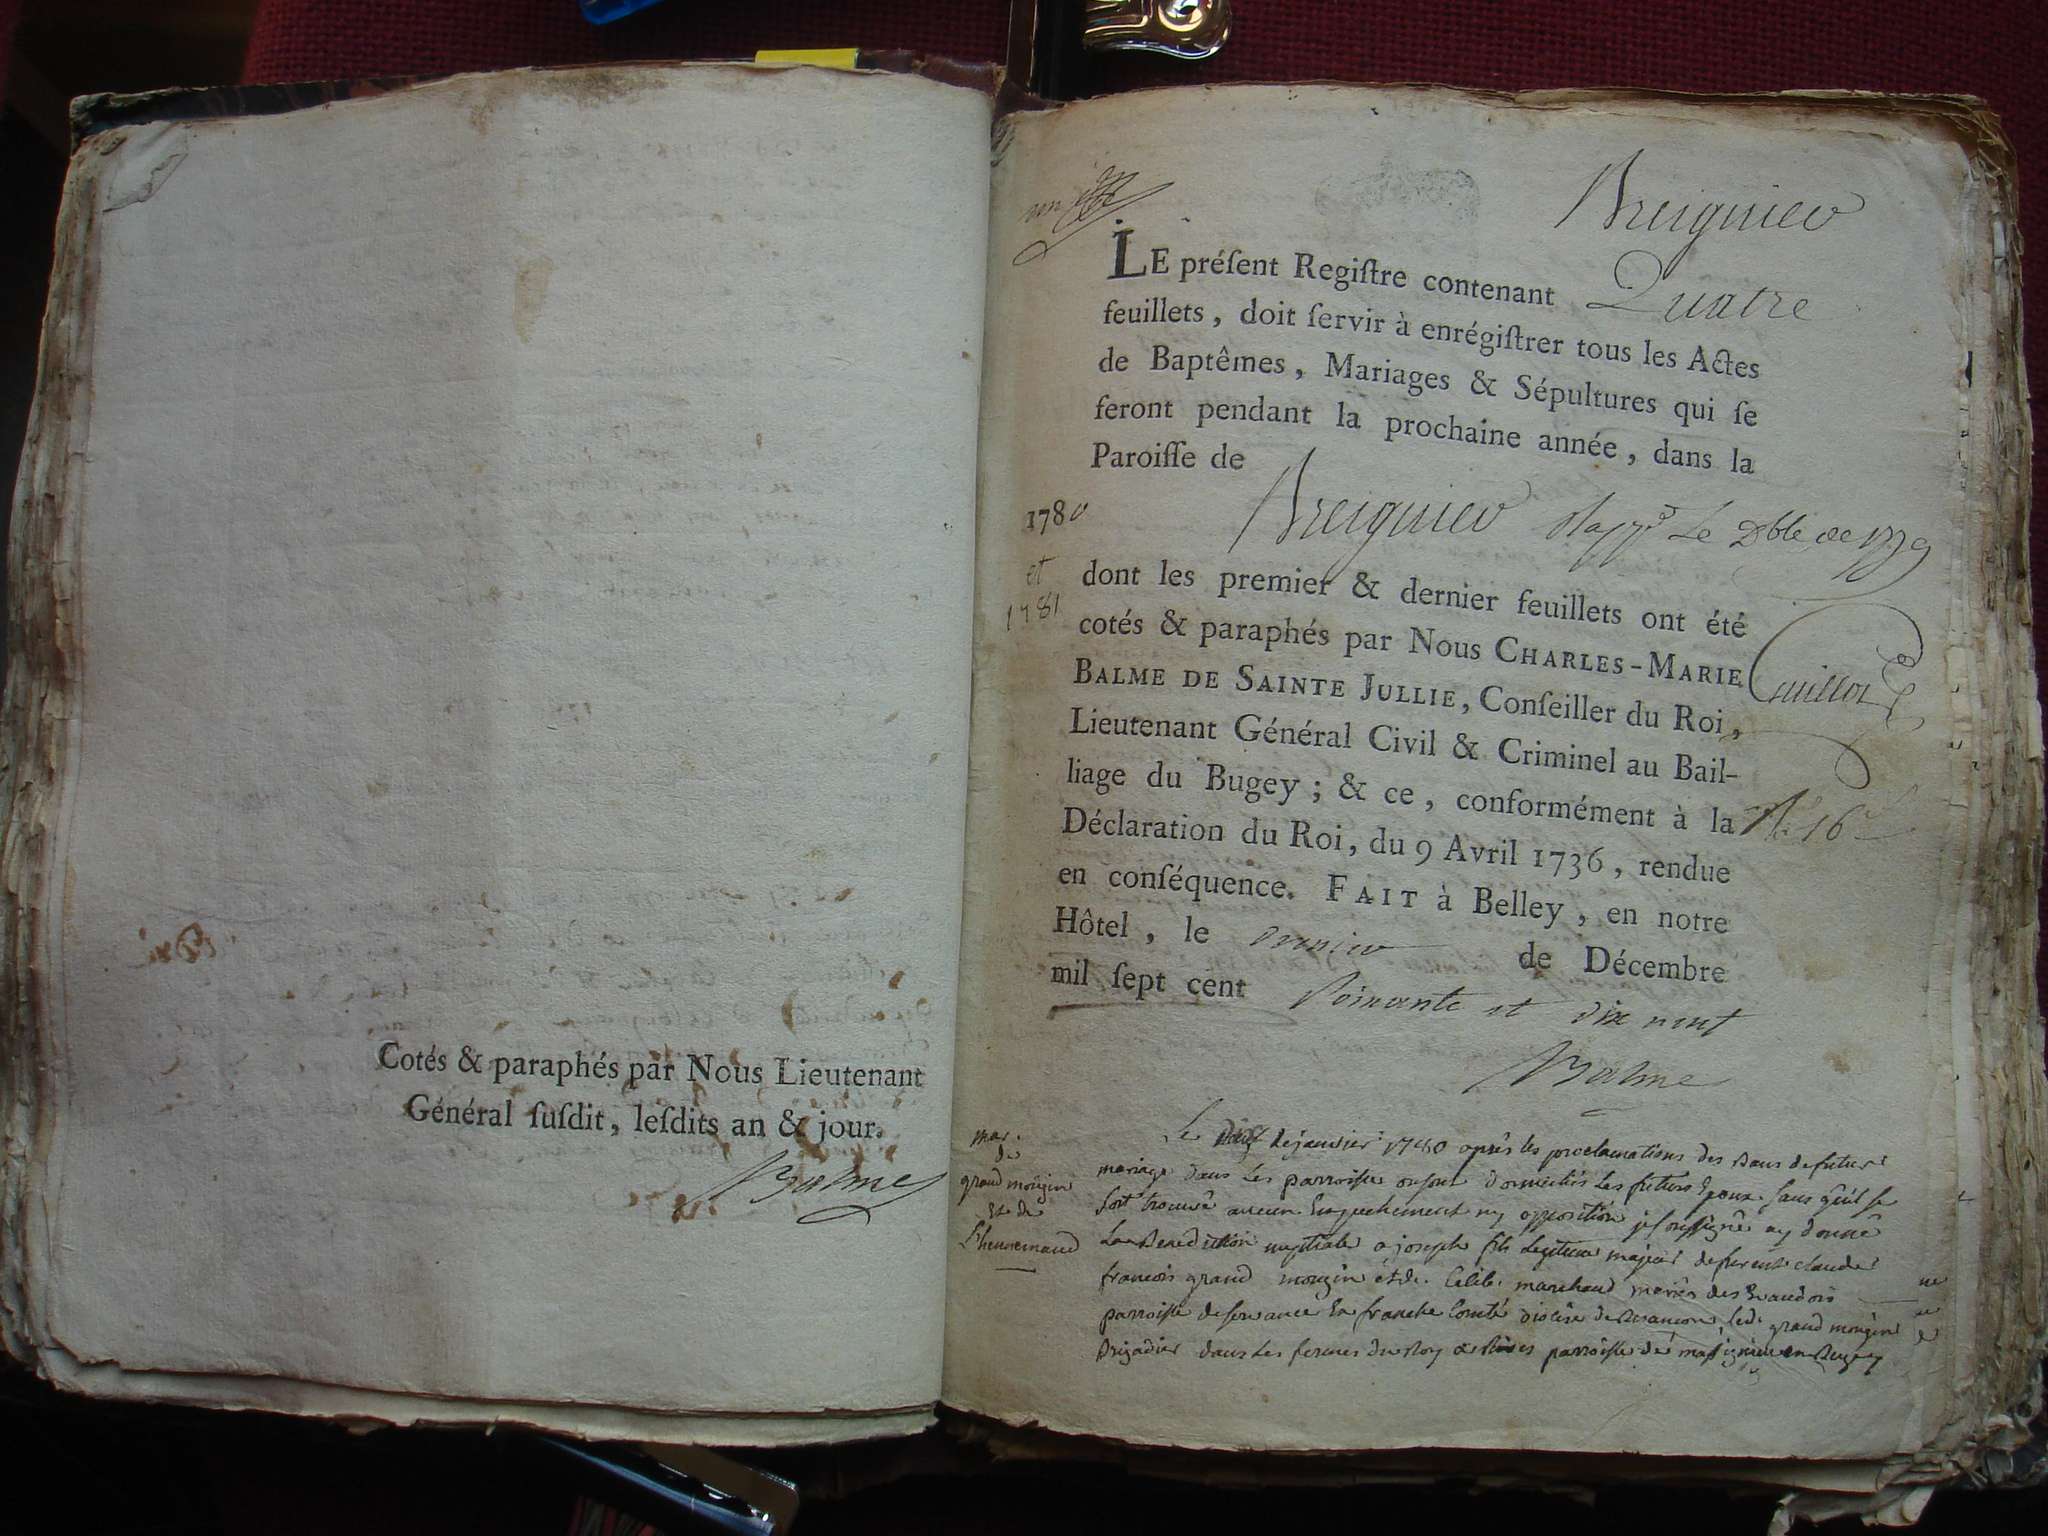 Cotés & paraphés par Nous Lieutenant
Général ſuſdit, leſdits an & jour.
Balme
un
Breignier
LE préſent Regiſtre contenant Quatre
feuillets, doit ſervir à enrégiſtrer tous les Actes
de Baptêmes, Mariages & Sépultures qui ſe
feront pendant la prochaine année, dans la
Paroiſſe de
1780
et
1781
Breignier
dont les premier & dernier feuillets ont été
cotés & paraphés par Nous CHARLES-MARIE
BALME DE SAINTE JULLIE, Conſeiller du Roi,
Lieutenant Général Civil & Criminel au Bail-
liage du Bugey ; & ce, conformément à la
Déclaration du Roi, du 9 Avril 1736, rendue
en conſéquence. FAIT à Belley, en notre
Hôtel, le premier de Décembre
mil ſept cent Soixante et dix neuf
Balme
mar.
de
grand mougin
et de
Le de janvier 1780 après les proclamations des bans de futur
mariage dans les parroisse ou sont les futurs Epoux sans qu'il se
soit trouvé aucun ny opposition je soussigné ay donné
La Benediction nuptiale a joseph fils Legitime majeur de claude
francois grand mougin et de marchand mariés des
parroisse de servance En franche Comté Diocèse de Besancon, led. grand mougin
Brigadier dans les fermes du Roy parroisse de massignieu en Bugey